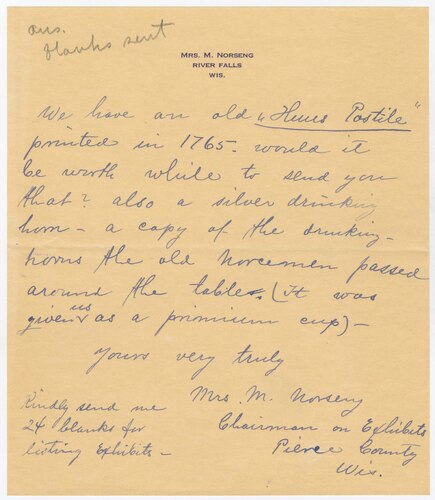 ans.
Blanks sent
MRS. M. NORSENG
RIVER FALLS
WIS.
We have an old "Huus Postile"
printed in 1765. would it
be worth while to send you
that? also a silver drinking
horn – a copy of the drinking–
horns the old Norcemen passed
around the table. (It was
given us as a primium cup) –
yours very truly
Mrs. M. Norseng
Chairman on Exhibits
Pierce County
Wis.
Kindly send me
24 blanks for
listing Exhibits –